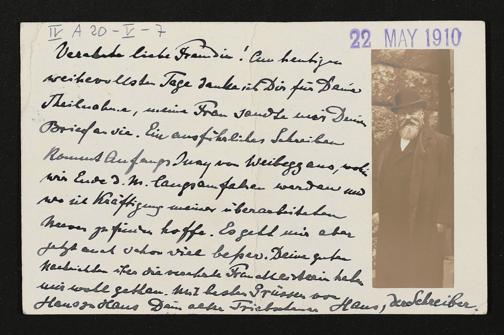 IV A 20-V-7
22 MAY 1910
Verehrte liebe Freundin! Am heutigen
weihevollsten Tage danke ich Dir für Deine
Theilnahme, meine Frau sandte mir Deine
Ein ausführliches Schreiben
kommt Anfangs Juny von aus, wohin
wir Ende d. M. langsam fahren werden und
wo ich Kräftigung meiner überarbeiteten
Nerven zu finden hoffe. Es geht mir aber
jetzt auch schon viel besser. Deine guten
Nachrichten über die verehrte haben
mir wohl gethan. Mit besten Grüssen von
Haus zu Haus Dein alter Hans, der Schreiber.